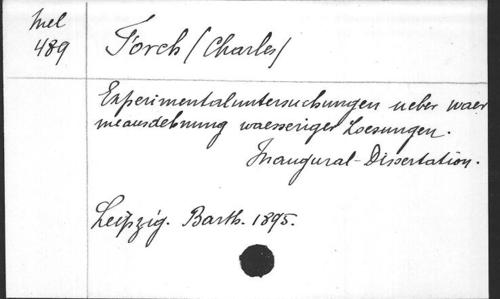 Mel
489
Forch (Charles)
Experimentaluntersuchungen ueber waer
meausdehnung waesseriger Loesungen.
Inaugural-Dissertation.
Leipzig. Barth. 1895.